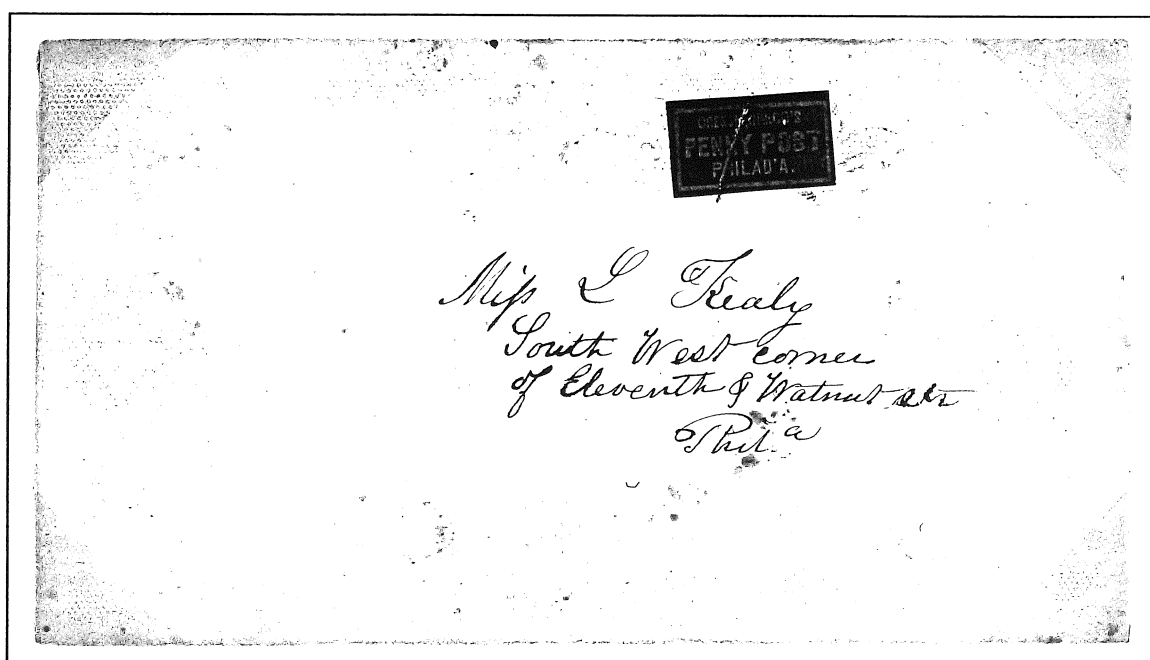 PENNY POST
PHILAD'A.
Miss L Kealy
South West corner
of Eleventh & Walnut
Phil.a